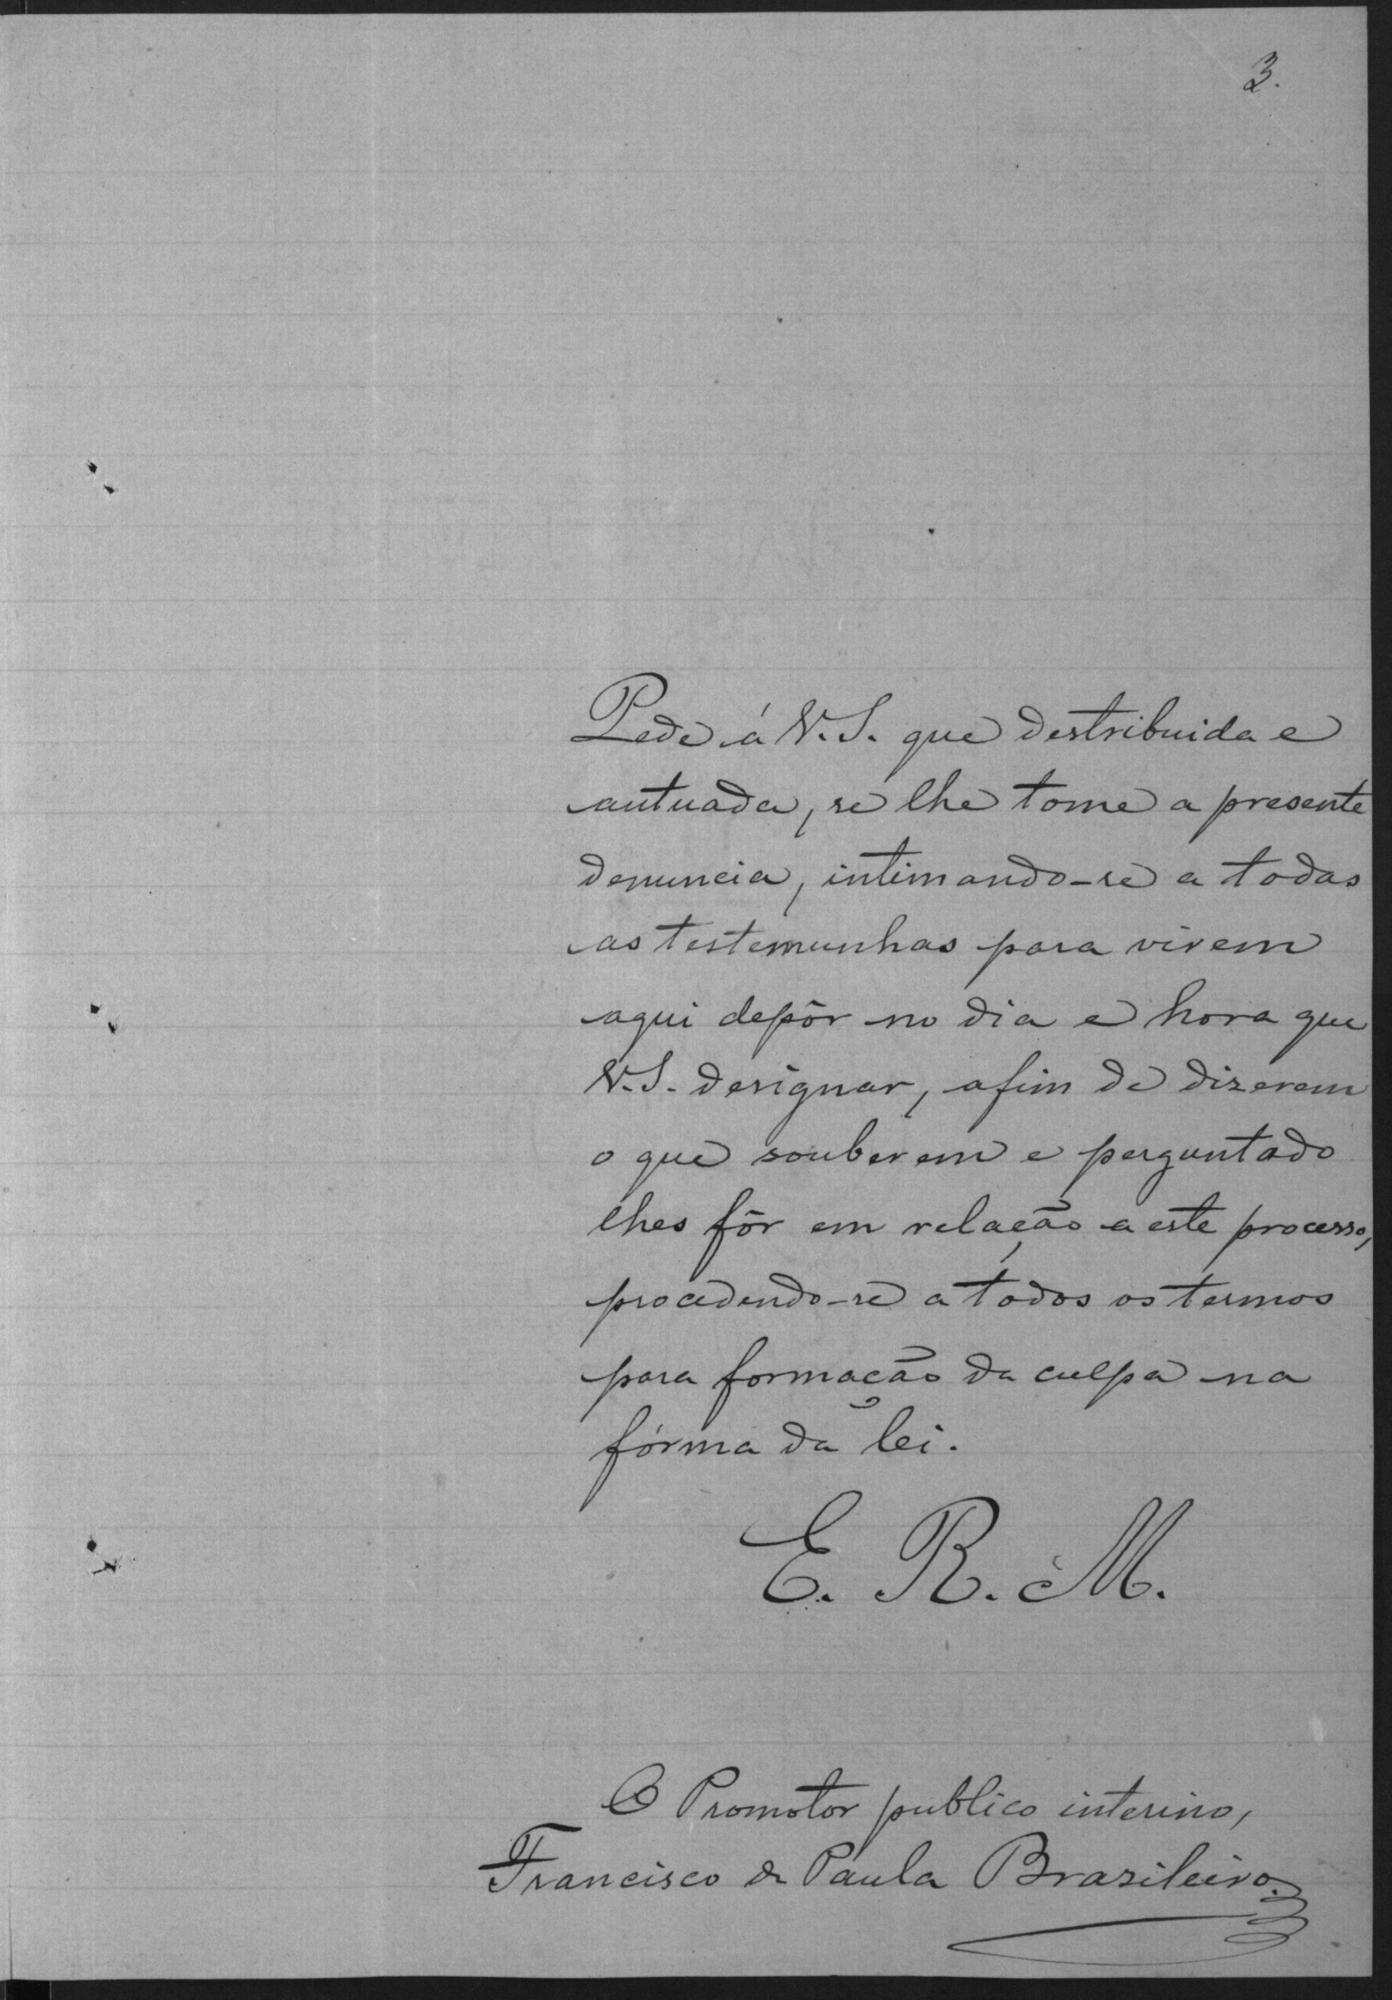 3.
Pede á V.S. que destribuida e
autuada, se lhe tome a presente
denuncia, intimando-se a todas
as testemunhas para virem
aqui depôr no dia e hora que
V.S. designar, afim de dizerem
o que souberem e perguntado
lhes fôr em relação a este processo,
procedendo-se a todos os termos
para formação da culpa na
fórma da lei.
E. R. M.
O Promotor publico interino,
Francisco de Paula Brasileiro.